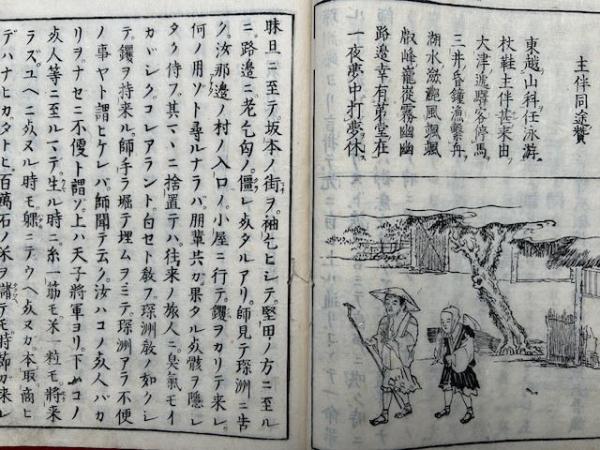 主伴同途贊
東越山科任泳游
杖鞋主伴甚来由
大津逓驛各停馬
三井昏鐘漁繫舟
湖水瀲灔風颯颯
叡峰巃嵸霧幽幽
路邊幸有茅堂在
一夜夢中打夢休
昧旦ニ至テ坂本ノ街ヲ袖乞ヒシテ堅田ノ方ニ至ル
ニ路邊ニ老乞匃ノ僵レ死タルアリ師見テ琛洲ニ告
ク汝那邊ノ村ノ入口ノ小屋ニ行テ钁ヲカリテ来レ
何ノ用ソト尋ルナラハ朋輩共カ果タル死骸ヲ隠シ
タク侍フ其マヽニ捨置テハ往来ノ旅人ニ臭氣モイ
カヾシクコレアラント白セト敎フ琛洲敎ノ如クシ
テ钁ヲ持来ル師手ラ堀テ埋ムヲミテ琛洲アラ不便
ノ事ヤト謂ヒケレバ師聞テ云ク汝ハコノ死人バカ
リヲナセニ不便ト謂ソ上ハ天子將軍ヨリ下ハコノ
死人等ニ至ルマテ生ル時ニ糸一筋モ米一粒モ將来
ラズユヘニ死ヌル時モ躶ニテウヘ死ヌカ本取商ヒ
デハナヒカタトヒ百萬石ノ米ヲ諸テモ時節カ来レ